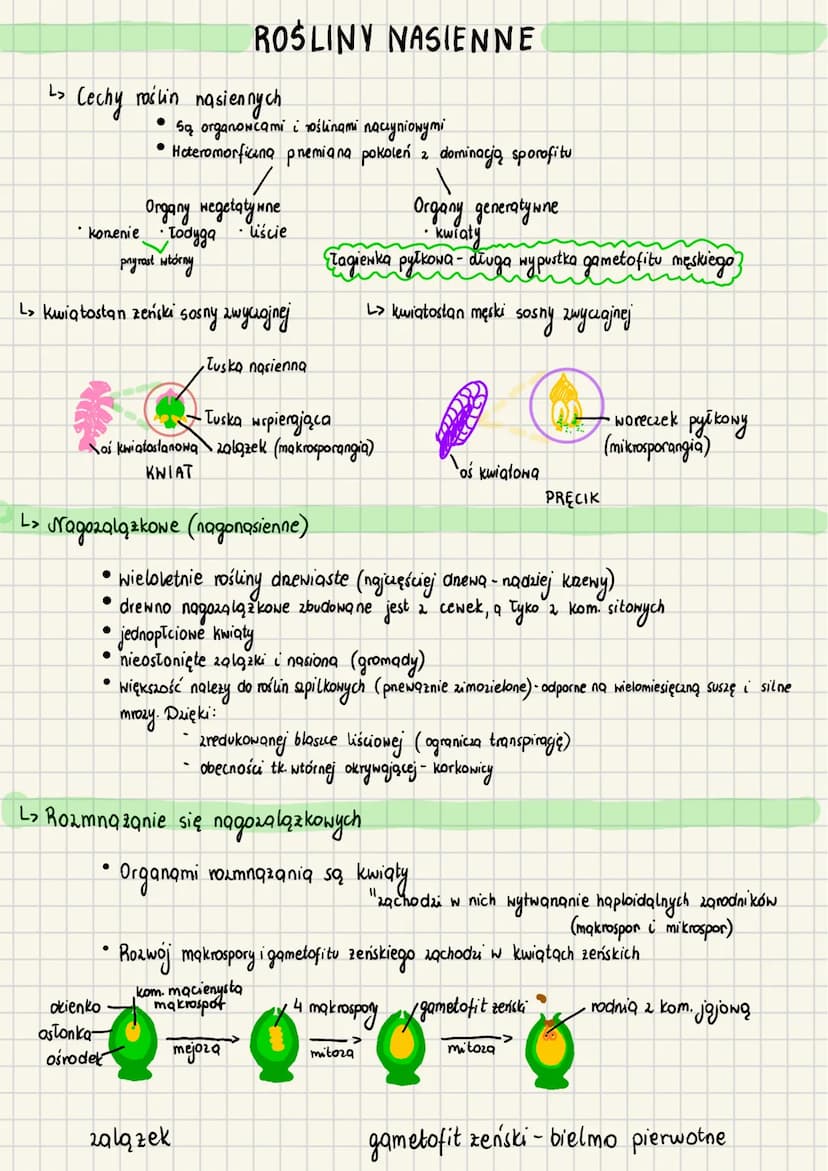 ROŚLINY NASIENNE
↳ Cechy roślin nasiennych
• Są organowcami i roślinami naczyniowymi
• Heteromorficzna przemiana pokoleń z dominacją sporofitu
Organy wegetatywne
· korzenie · łodyga · liście
przyrost wtórny
Organy generatywne
· kwiaty
Łagienka pyłkowa - długa wypustka gametofitu męskiego
↳ Kwiatostan żeński sosny zwyczajnej
↳ kwiatostan męski sosny zwyczajnej
łuska nasienna
łuska wspierająca
oś kwiatostanowa
zalążek (makrosporangia)
KWIAT
woreczek pyłkowy
(mikrosporangia)
oś kwiatowa
PRĘCIK
↳ Nagozalążkowe (nagonasienne)
• wieloletnie rośliny drzewiaste (najczęściej drzewa - rzadziej krzewy)
• drewno nagozalążkowe zbudowane jest z cewek, a łyko z kom. sitowych
• jednopłciowe kwiaty
• nieosłonięte zalążki i nasiona (gromady)
• większość należy do roślin szpilkowych (przeważnie zimozielone) - odporne na wielomiesięczną suszę i silne
mrozy. Dzięki:
- zredukowanej blaszce liściowej (ogranicza transpirację)
- obecności tk. wtórnej okrywającej - korkowicy
↳ Rozmnażanie się nagozalążkowych
• Organami rozmnażania są kwiaty
"zachodzi w nich wytwarzanie haploidalnych zarodników
(makrospor i mikrospor)
• Rozwój makrospory i gametofitu żeńskiego zachodzi w kwiatach żeńskich
okienko
osłonka
ośrodek
kom. macierzysta
makrospor
mejoza
4 makrospory
mitoza
gametofit żeński
mitoza
rodnia z kom. jajową
zalążek
gametofit żeński - bielmo pierwotne